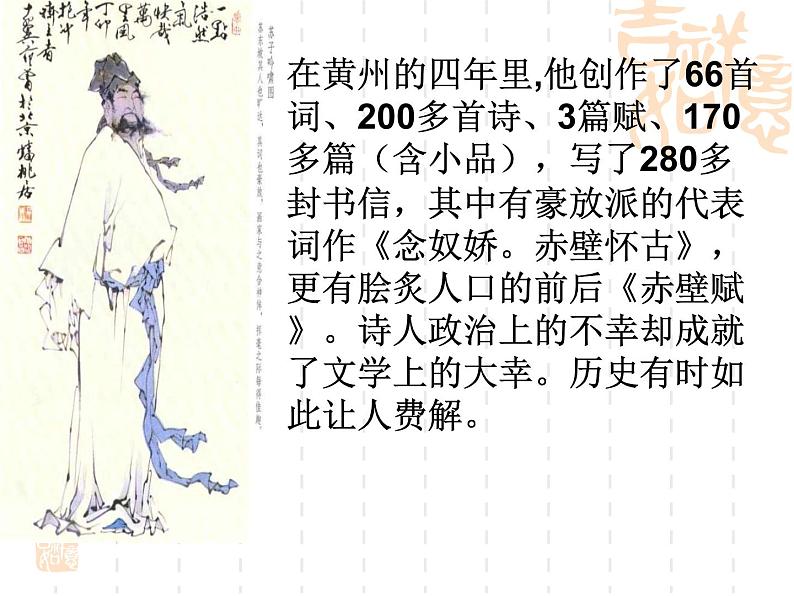 在黄州的四年里,他创作了66首
词、200多首诗、3篇赋、170
多篇（含小品），写了280多
封书信，其中有豪放派的代表
词作《念奴娇。赤壁怀古》，
更有脍炙人口的前后《赤壁赋
》。诗人政治上的不幸却成就
了文学上的大幸。历史有时如
此让人费解。
一点
浩然
气
快哉
万
里风
丁卯
年
苏子吟啸图
吉祥
如意